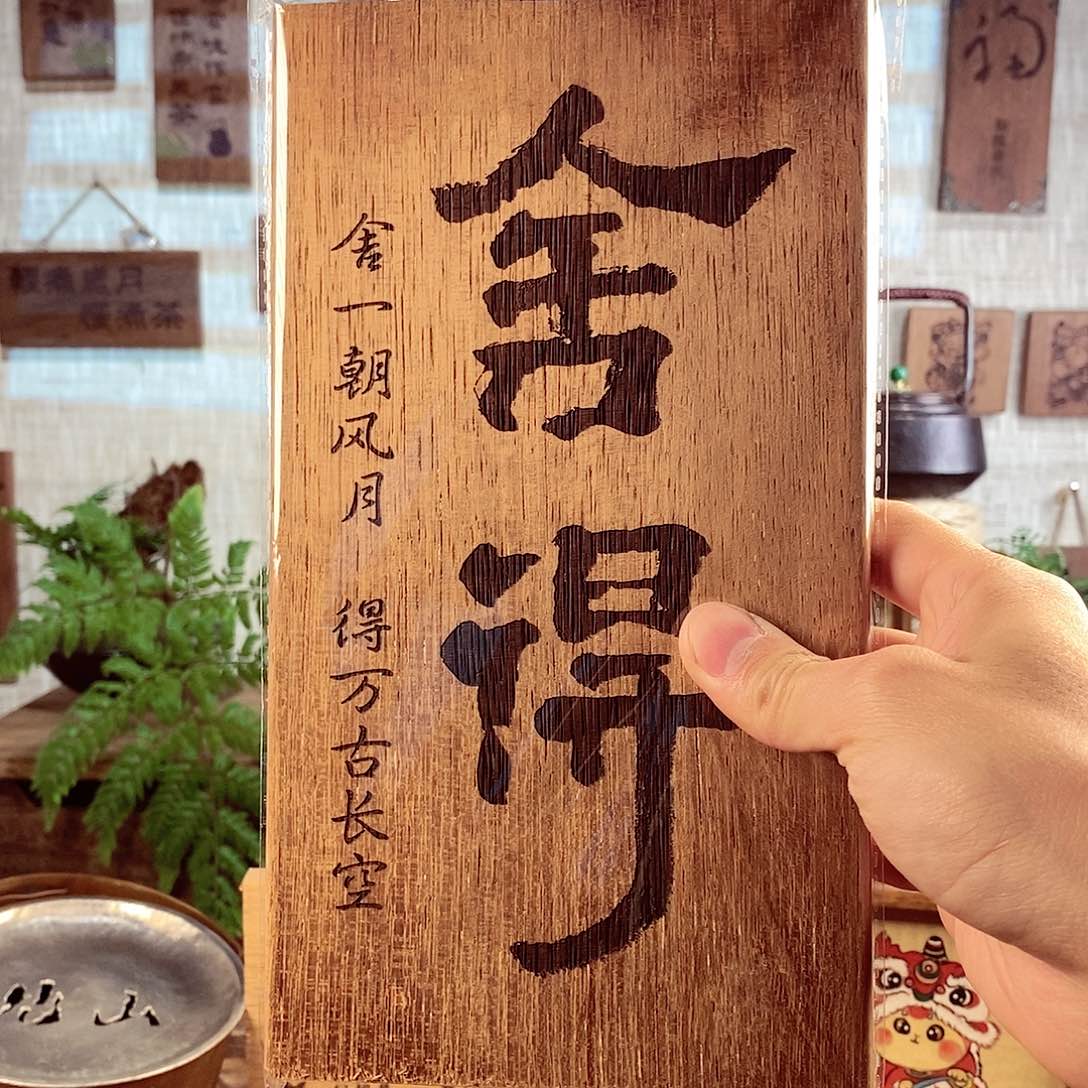 舍得
舍一朝风月 得万古长空
福
山